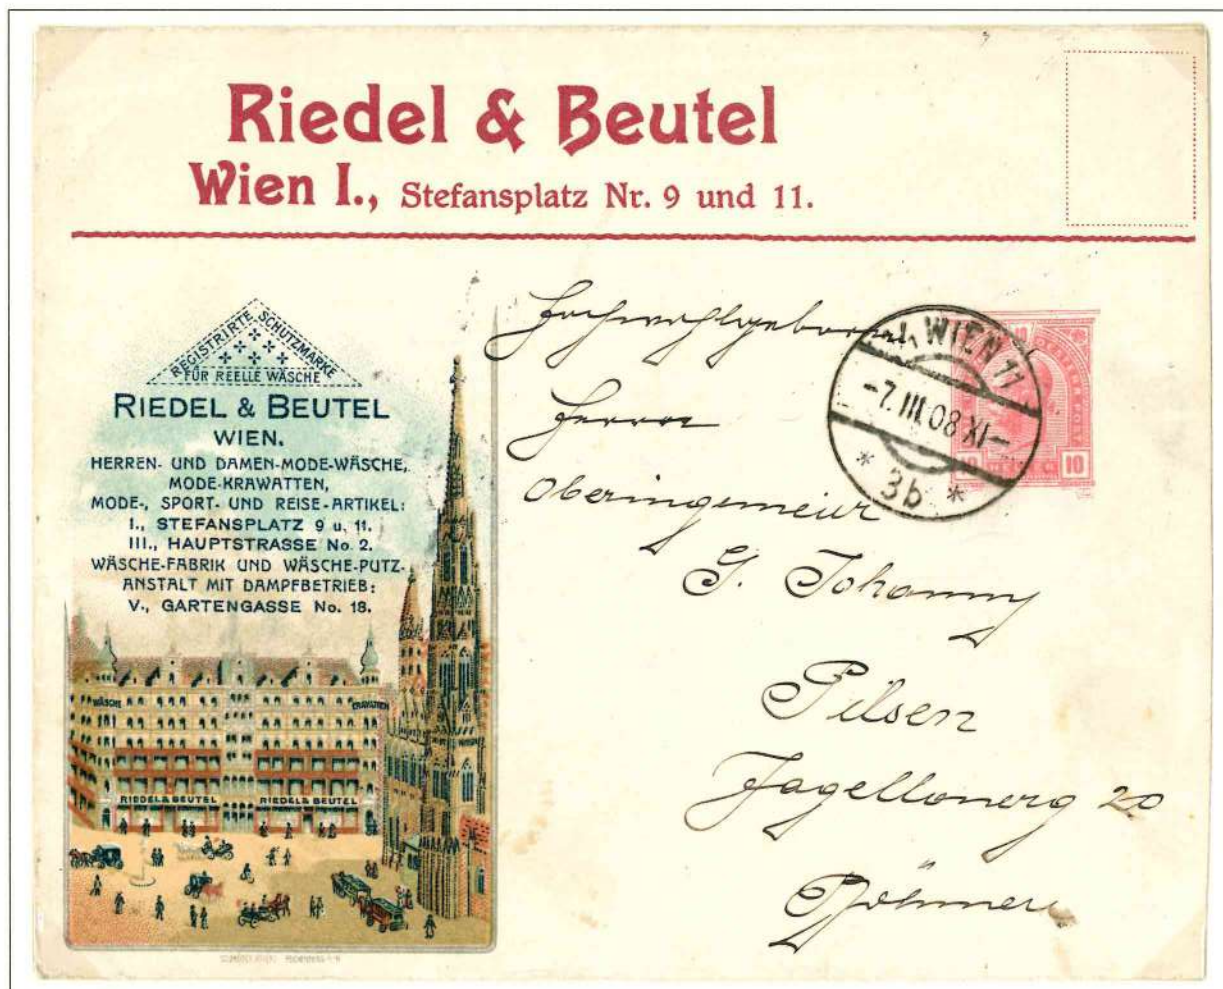 Riedel & Beutel
Wien I., Stefansplatz Nr. 9 und 11.
REGISTRIRTE SCHUTZMARKE
FÜR REELLE WÄSCHE
RIEDEL & BEUTEL
WIEN.
HERREN- UND DAMEN-MODE-WÄSCHE,
MODE-KRAWATTEN,
MODE-, SPORT- UND REISE-ARTIKEL:
I., STEFANSPLATZ 9 u. 11.
III., HAUPTSTRASSE No. 2.
WÄSCHE-FABRIK UND WÄSCHE-PUTZ-
ANSTALT MIT DAMPFBETRIEB:
V., GARTENGASSE No. 18.
WÄSCHE
RIEDEL & BEUTEL RIEDEL & BEUTEL
Hochwohlgeboren
Herrn
Oberingenieur
G. Johanny
Pilsen
Jagellonerg 20
Böhmen
WIEN 11
-7.III.08 XI-
* 3b *
10 10